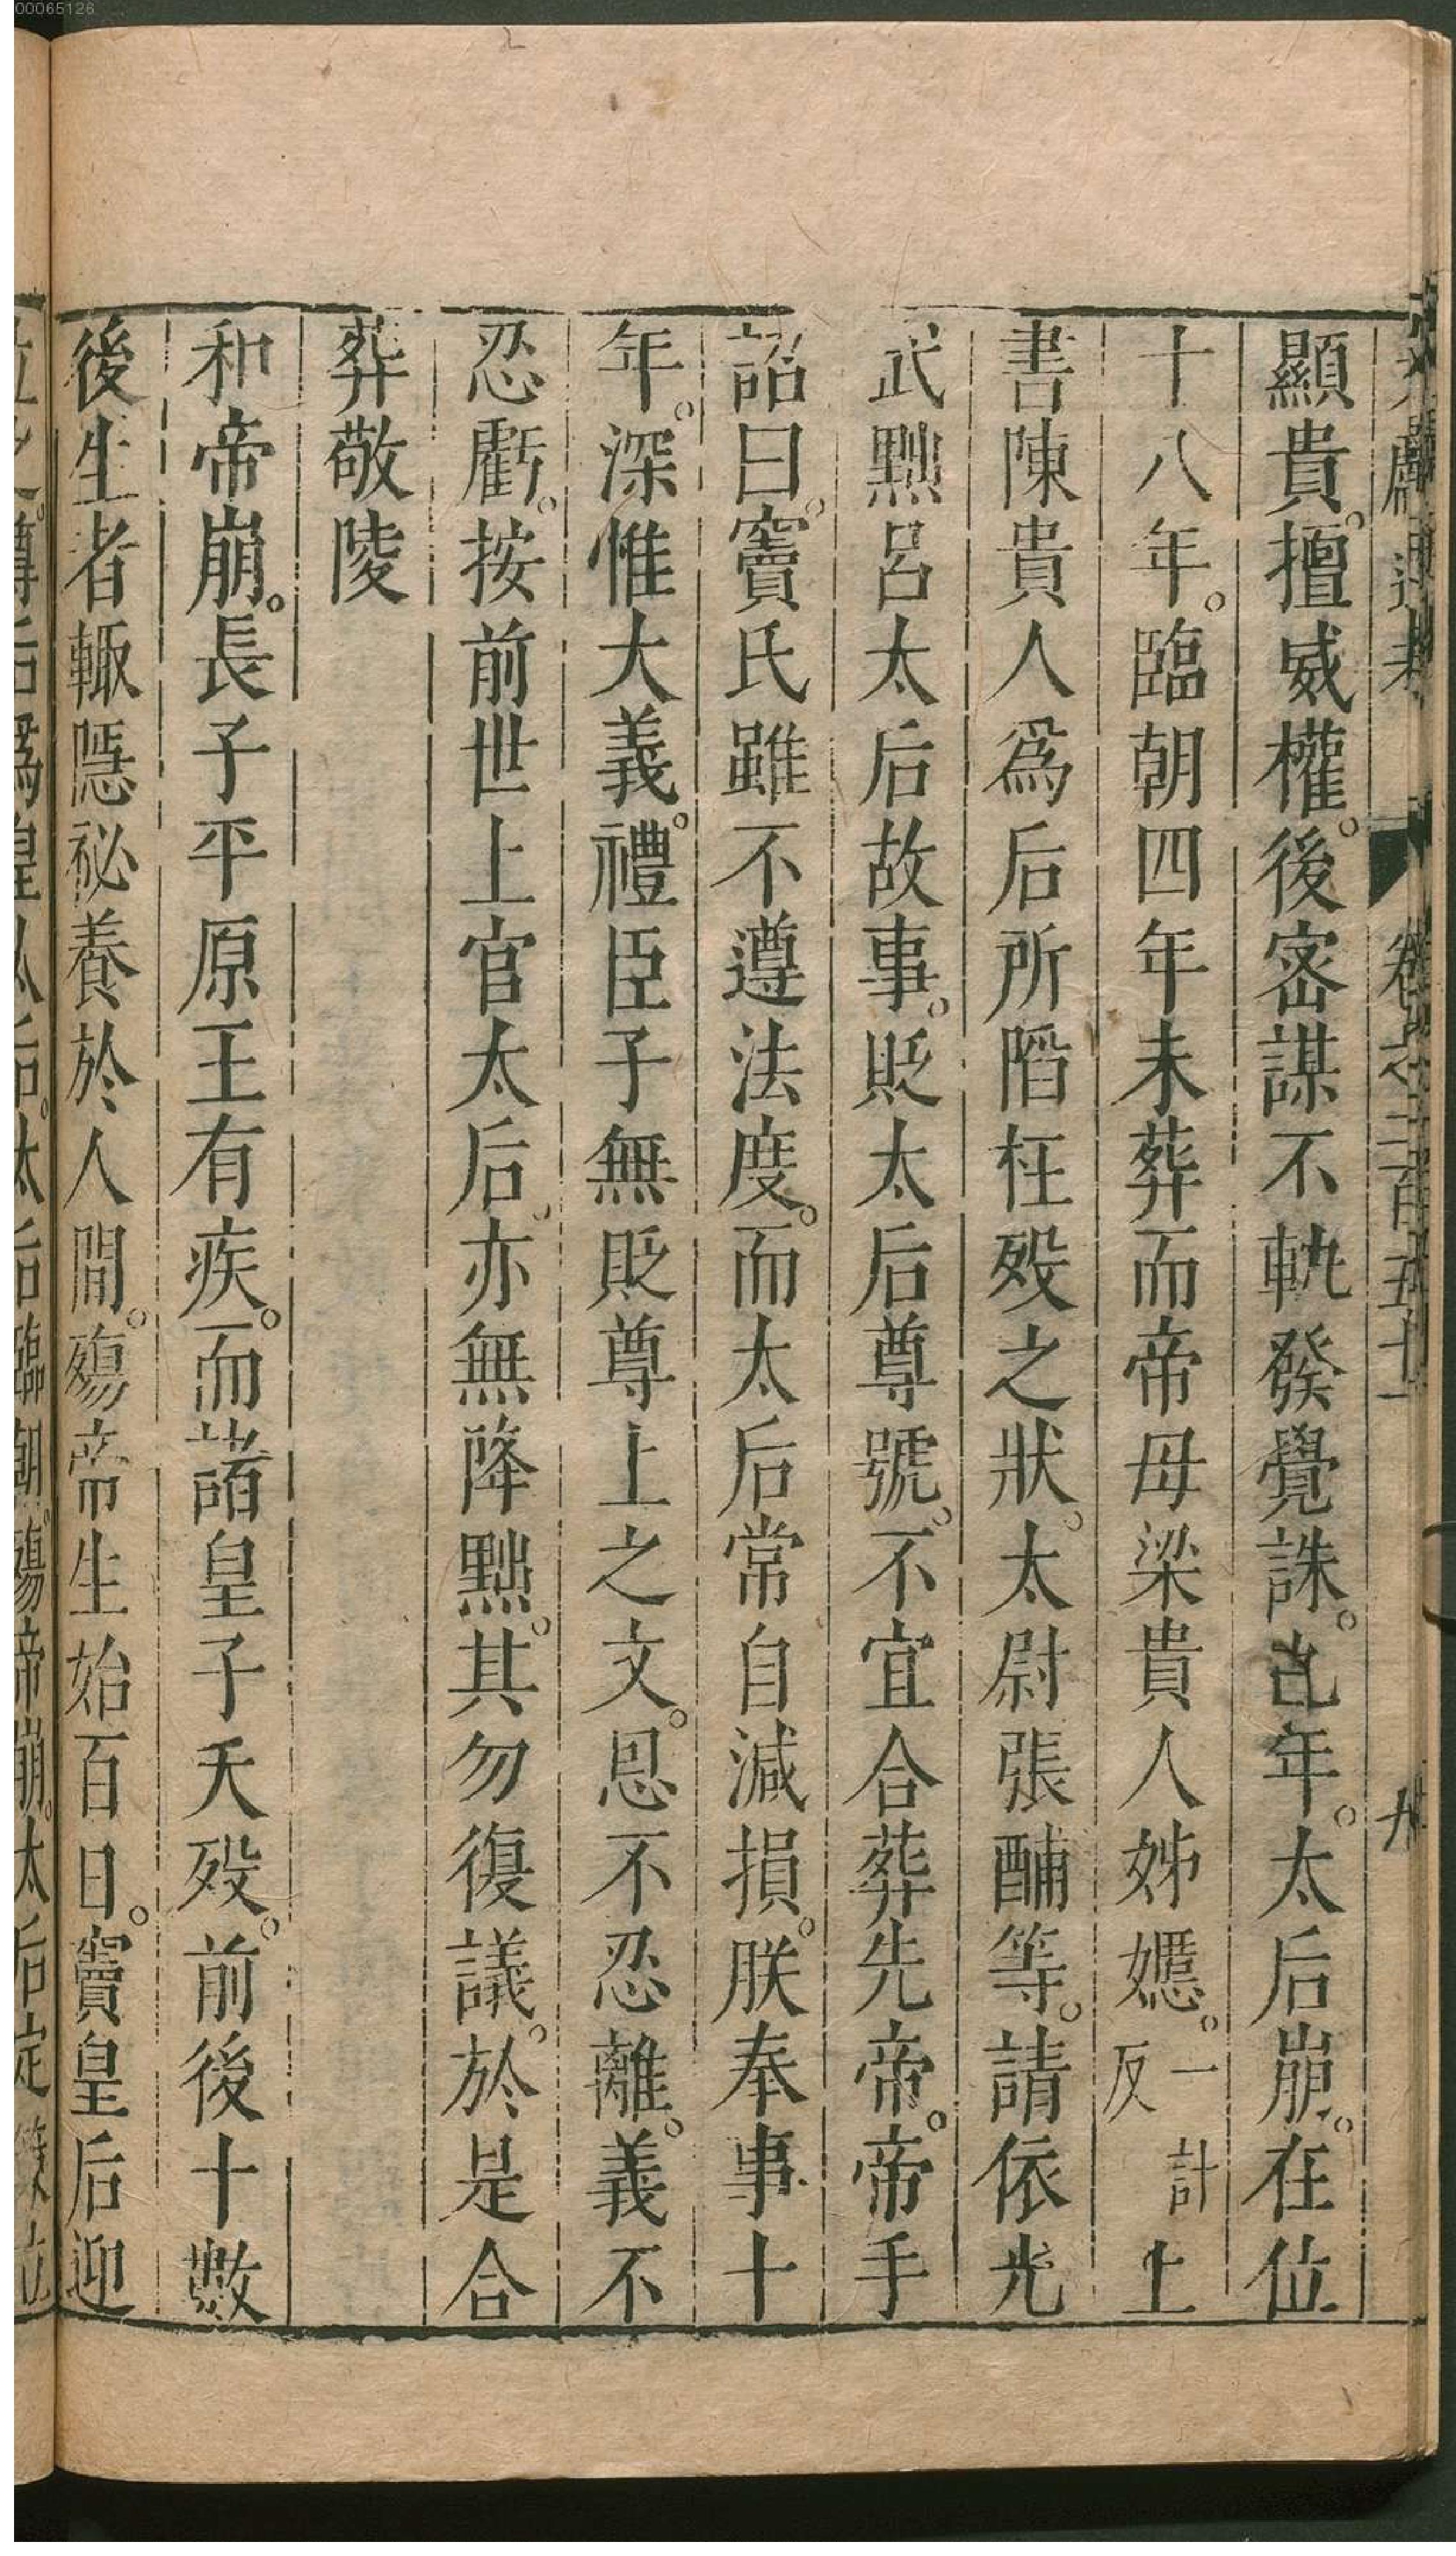 00065126
文獻通考 卷之二百五十一 九
顯貴。擅威權。後密謀不軌發覺誅。九年。太后崩。在位
十八年。臨朝四年未葬而帝母梁貴人姊嫕。一計反上
書陳貴人爲后所陷枉歿之狀。太尉張酺等。請依光
武黜呂太后故事。貶太后尊號。不宜合葬先帝。帝手
詔曰。竇氏雖不遵法度。而太后常自減損。朕奉事十
年。深惟大義。禮臣子無貶尊上之文。恩不忍離。義不
忍虧。按前世上官太后。亦無降黜。其勿復議。於是合
葬敬陵
和帝崩。長子平原王有疾。而諸皇子夭歿。前後十數
後生者輙隱祕養於人間。殤帝生始百日。竇皇后迎
立之。尊后爲皇太后。太后臨朝。殤帝崩。太后定策立